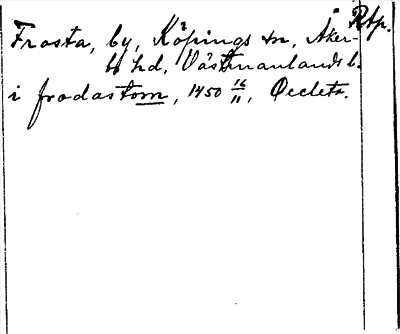 Frosta, by, Köpings sn, Åker- Rtp.
bo hd, Västmanlands l.
i frodastom, 1450 16/11, Oecletr.